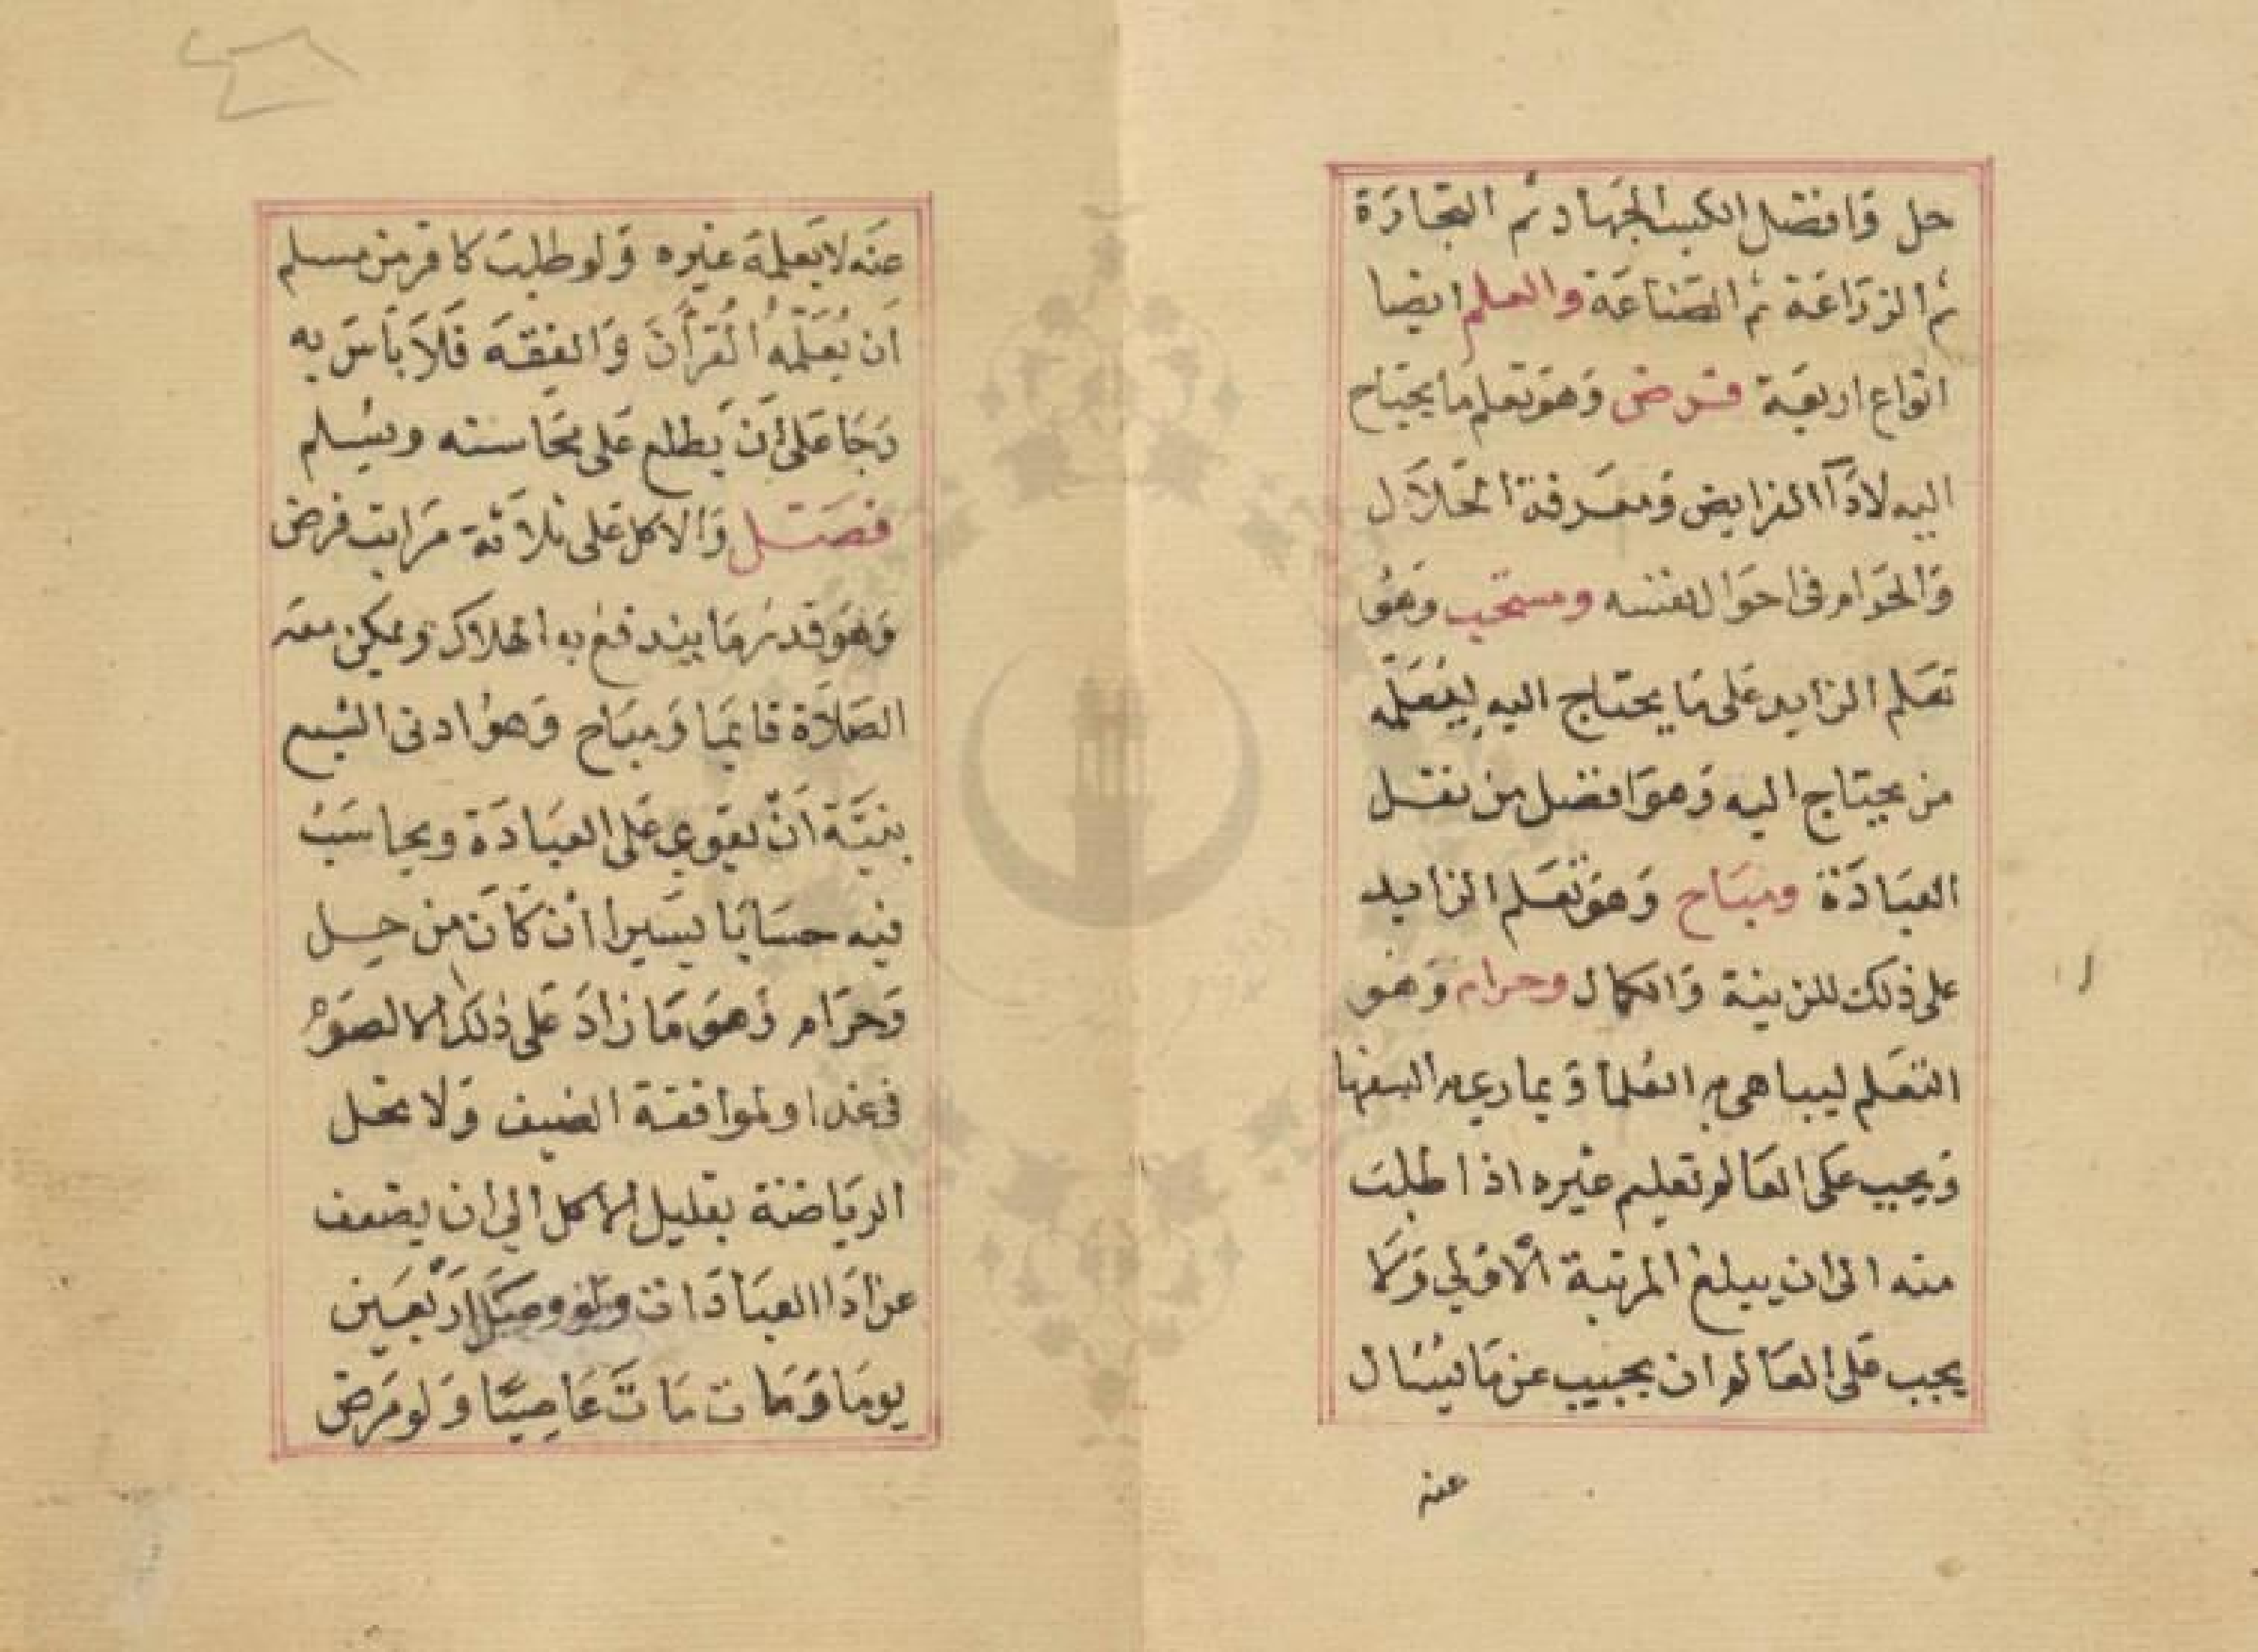 حل وَافضل الكسب الجهاد ثم التجَارَة
ثم الزرَاعَة ثم الصّناعَة والعلم ايضا
انوَاع اربعَة فرض وَهوَ تعلم مَا يحتَاج
اليه لادَآ الفرايض وَمعَرفة الحَلاَل
وَالحرَام فى احوَال نفسه ومستحب وَهوُ
تعَلم الزايد عَلى مَا يحتاج اليه ليُعَلّمه
من يحتاج اليه وَهوَ افضل من نفل
العبَادَة ومبَاح وَهوَ تعَلم الزايد
على ذلك للزينة وَالكمال وحرام وَهو
التعَلم ليباهى به العُلما وَيمارى به السفها
وَيجب عَلى العَالم تعليم غيره اذا طلبَ
منه الى ان يبلغ المرتبة الاوْلي وَلاَ
يجب عَلى العَالم ان يجيب عن مَا يُسْال
عنه
عنَه لاَ يَعلمَه غيره وَلو طلبَ كافر من مسلم
اَن يُعَلّمه القرأنَ وَالفِقهَ فَلاَ بَاسَ به
رَجَا عَلىَ اَن يَطلع عَلى محَاسنه ويُسلم
فصَل وَالاكل عَلى ثلاَثة مَرَاتب فرض
وَهوَ قدر مَا يندفع به الهلاَك ويمكن معَه
الصَلاَة قايمَا وَمبَاح وَهوُ ادنى الشبع
بنيَّة اَنّ يقوي عَلى العبَادَة ويحاسَبُ
فيه حسَابَا يسَيرا اَن كَانَ من حل
وَحرَام وَهوَ مَا زادَ عَلى ذلكَ الا لصَوْم
فى غد او لموافقة الضيف وَلا تحل
الريَاضة بتقليل الاكل الي ان يضعف
عن ادَا العبَادَات ولو وصَل ارَبْعَين
يومَا وَمَات مَاتَ عَاصيًا وَلو مَرضَ